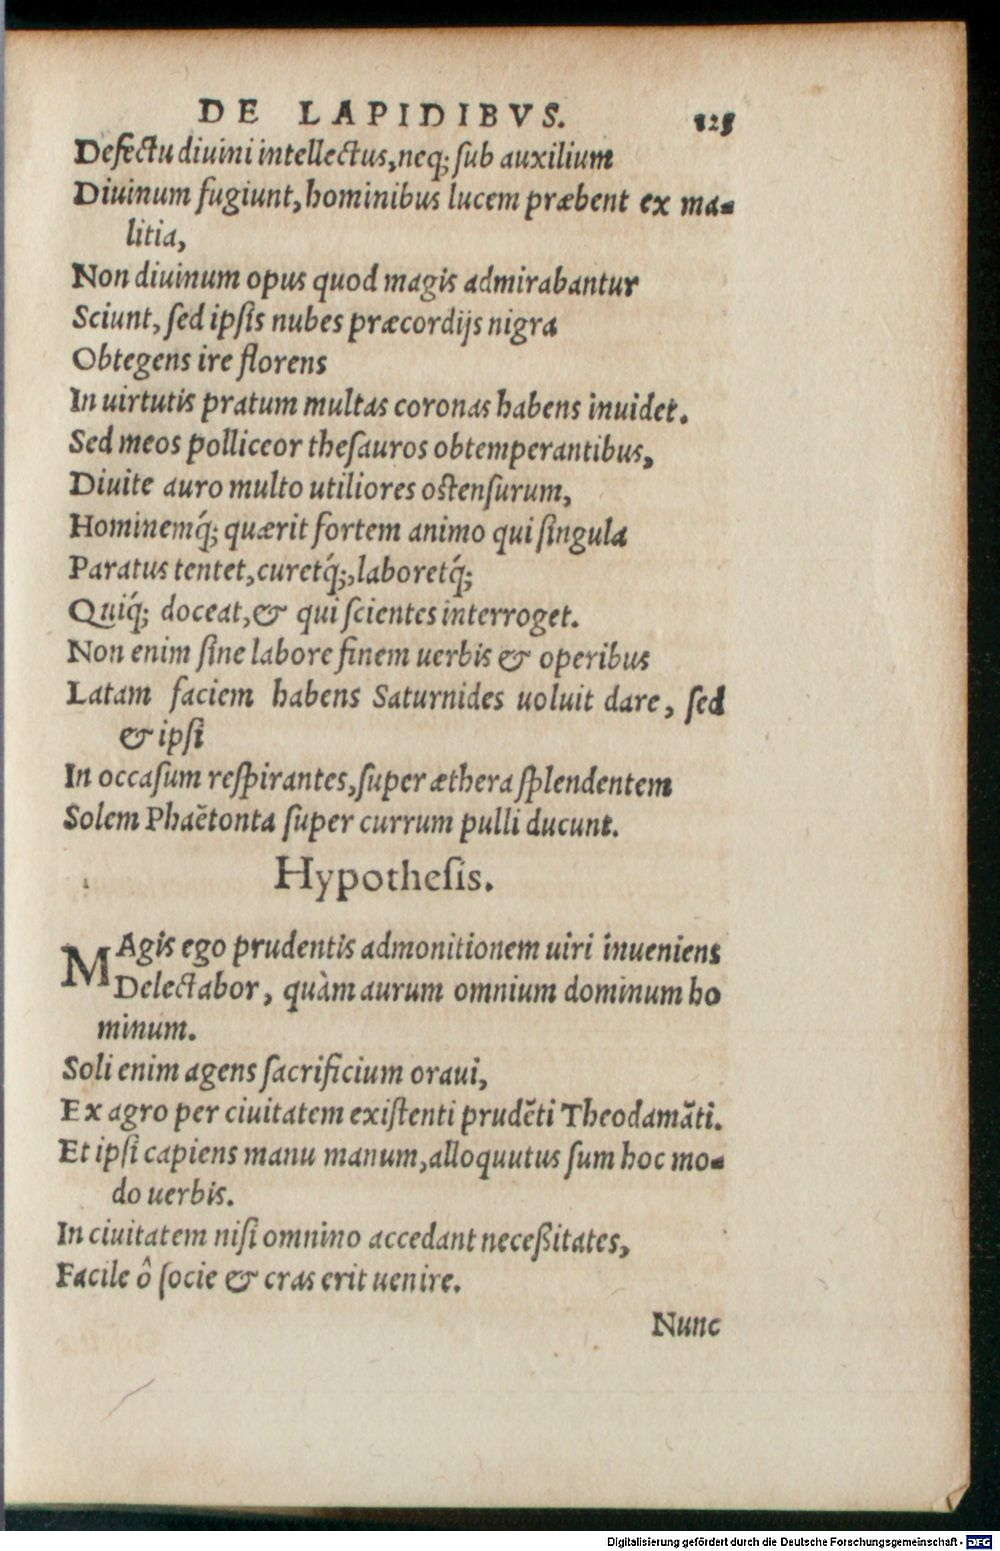 DE LAPIDIBVS. 125
Defectu diuini intellectus, neq; sub auxilium
Diuinum fugiunt, hominibus lucem præbent ex ma-
litia,
Non diuinum opus quod magis admirabantur
Sciunt, sed ipsis nubes præcordijs nigra
Obtegens ire florens
In uirtutis pratum multas coronas habens inuidet.
Sed meos polliceor thesauros obtemperantibus,
Diuite auro multo utiliores ostensurum,
Hominemq́; quærit fortem animo qui singula
Paratus tentet, curetq́;, laboretq́;
Quiq́; doceat, & qui scientes interroget.
Non enim sine labore finem uerbis & operibus
Latam faciem habens Saturnides uoluit dare, sed
& ipsi
In occasum respirantes, super æthera splendentem
Solem Phaëtonta super currum pulli ducunt.
Hypothesis.
MAgis ego prudentis admonitionem uiri inueniens
Delectabor, quàm aurum omnium dominum ho
minum.
Soli enim agens sacrificium oraui,
Ex agro per ciuitatem existenti prudẽti Theodamãti.
Et ipsi capiens manu manum, alloquutus sum hoc mo-
do uerbis.
In ciuitatem nisi omnino accedant neceßitates,
Facile ô socie & cras erit uenire.
Nunc
Digitalisierung gefördert durch die Deutsche Forschungsgemeinschaft - DFG